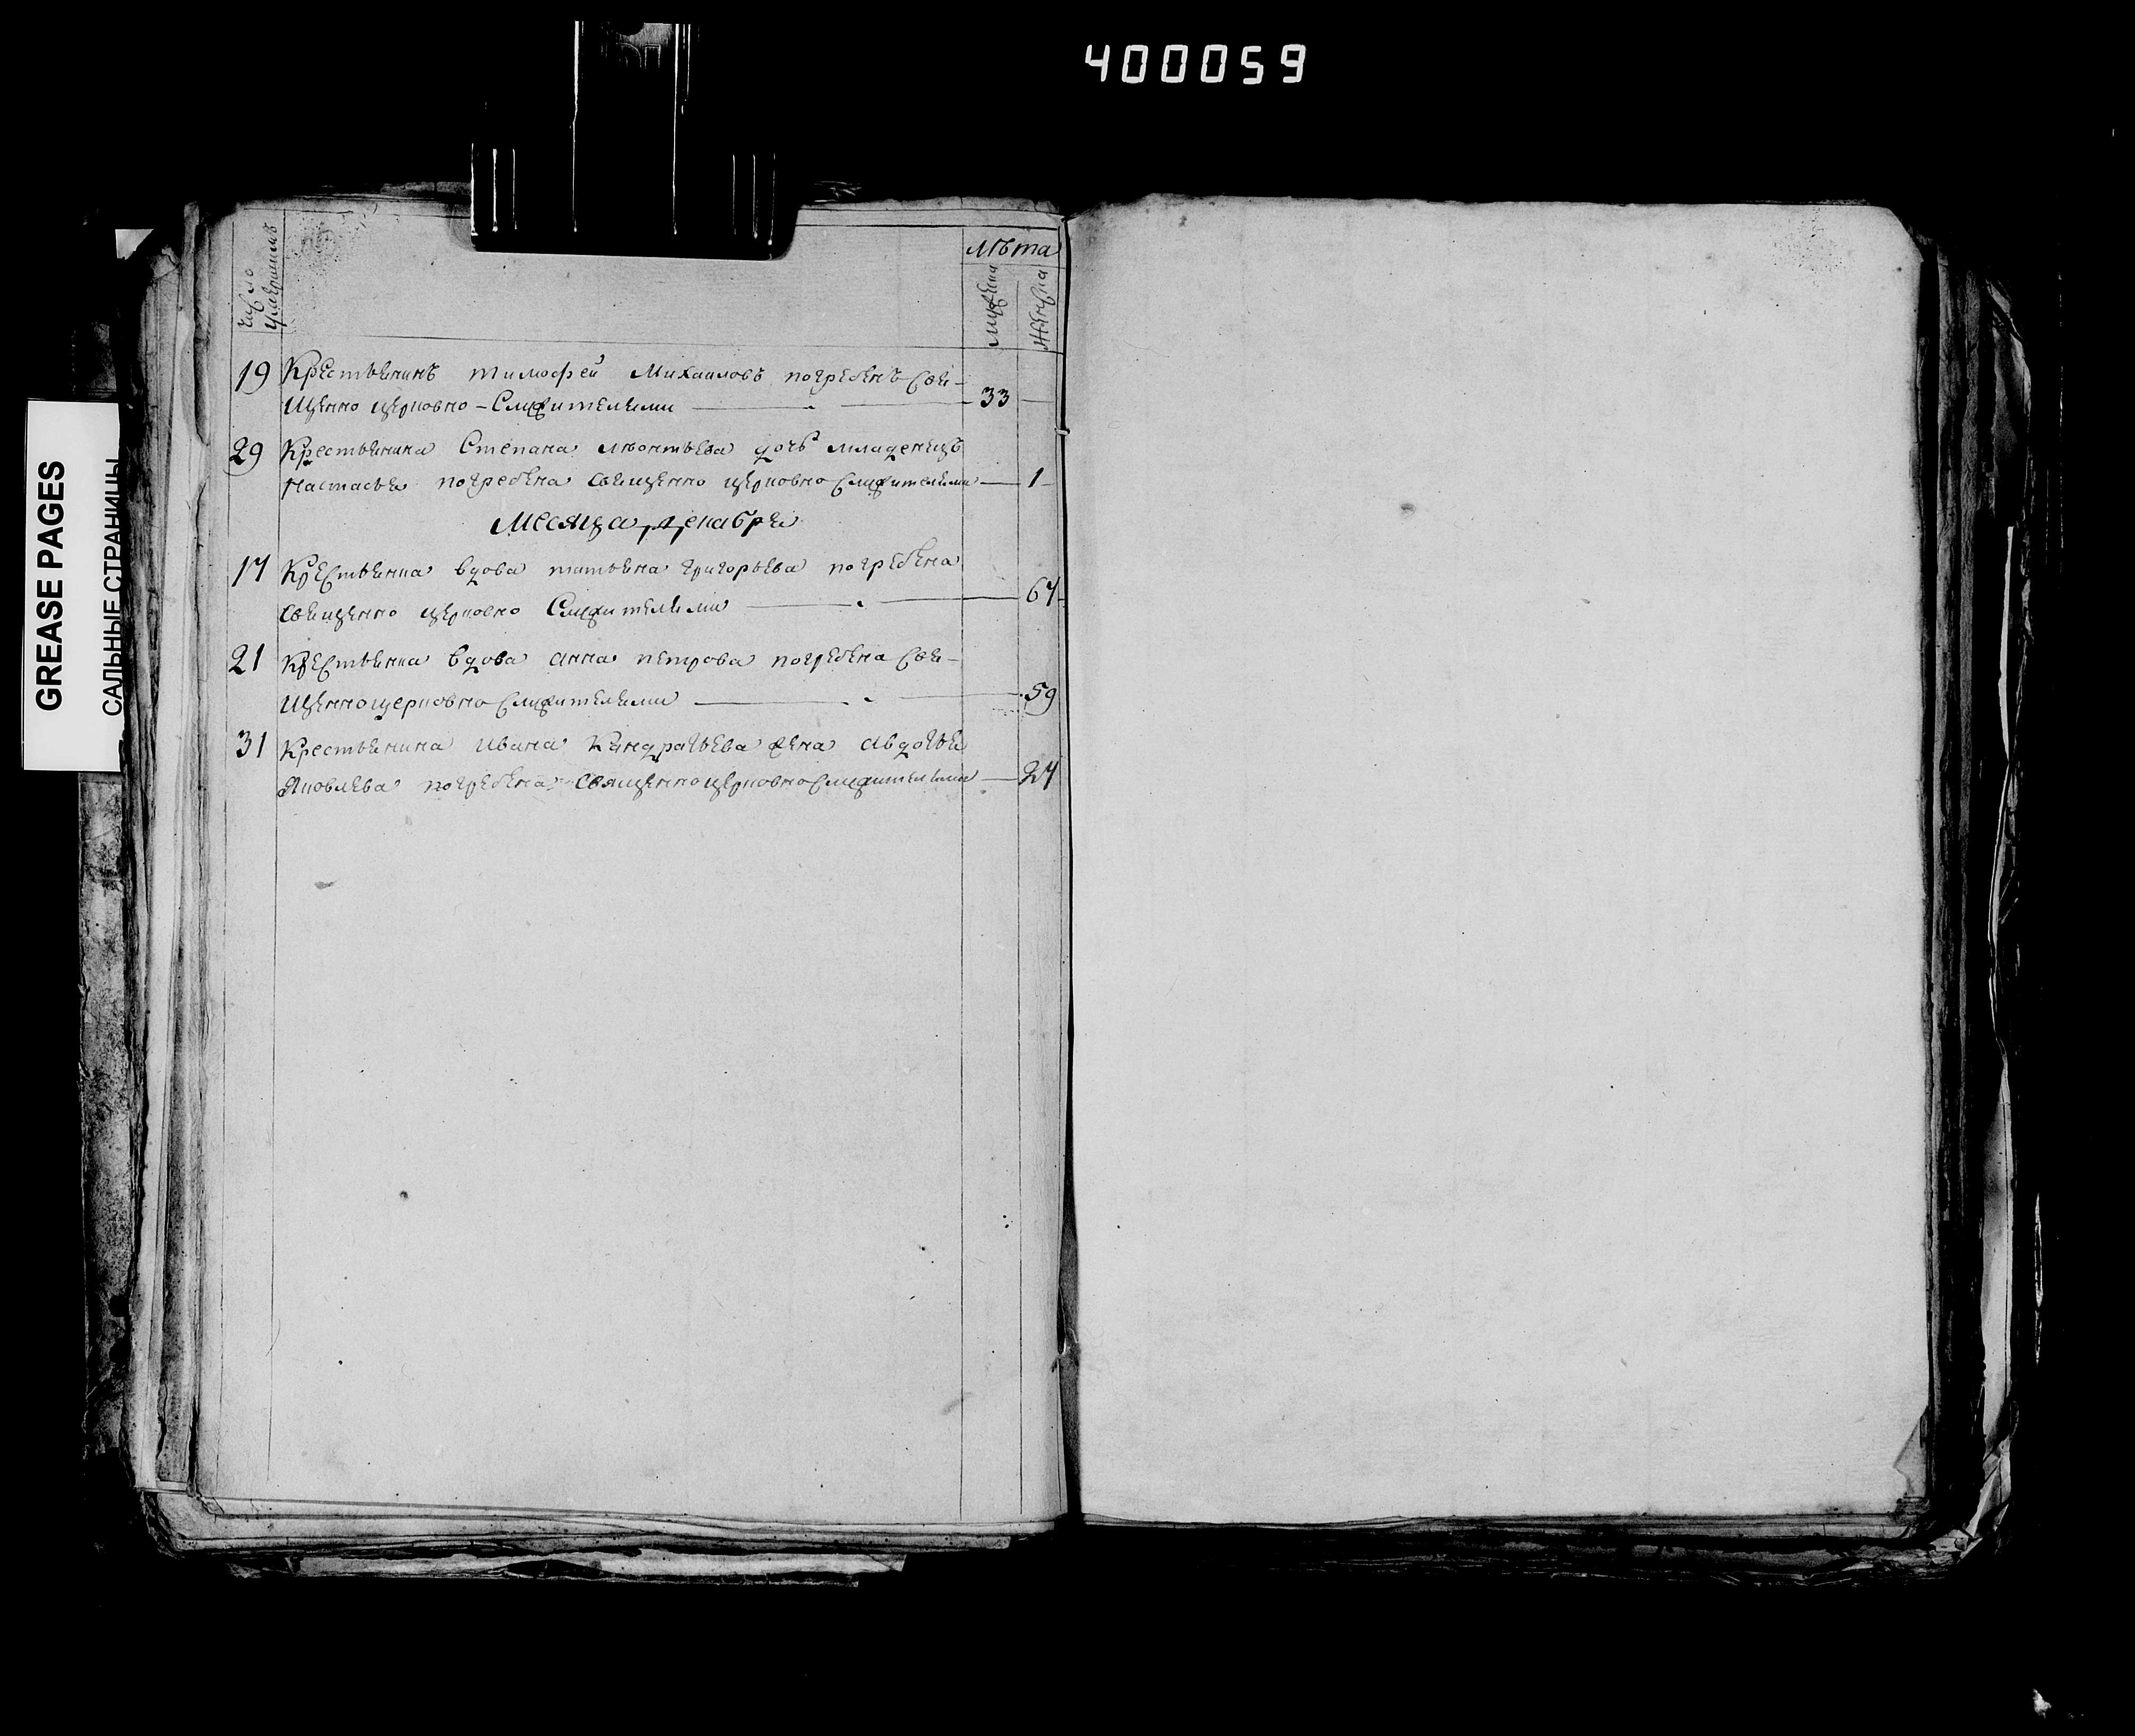 400059
GREASE PAGES
САЛЬНЫЕ СТРАНИЦЫ
Число умершимъ
лѣта
мужеска
женска
19 Крестьянинъ тимофей Михаиловъ погребенъ свя-
щенно церковно-служителями 33
29 Крестьянина Степана леонтьева дочь младенецъ
Настасья погребена священно церковно служителями 1
Месяца декабря
17 Крестьянка вдова татьяна григорьева погребена
священно церковно служителями 67
21 Крестьянка вдова анна петрова погребена свя-
щенноцерковно служителями 59
31 Крестьянина ивана Кандратьева жена авдотья
Яковлева погребена священноцерковнослужителями 27